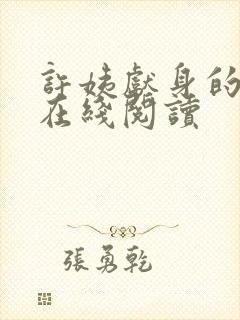 許姨獻身的
在綫閱讀
張勇乾